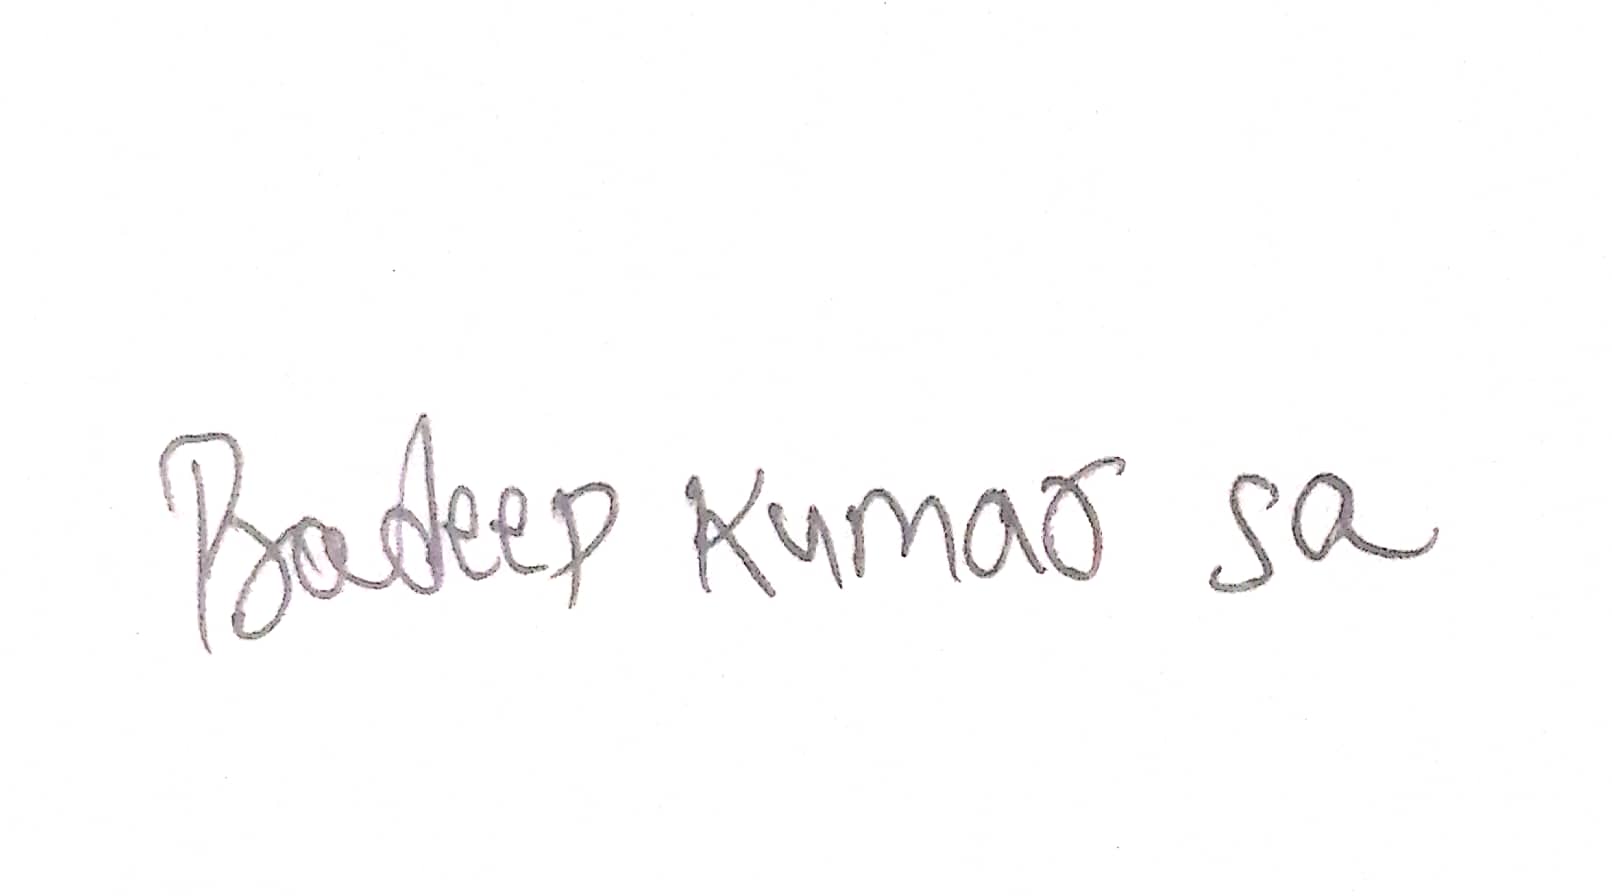 Pradeep Kumar sa